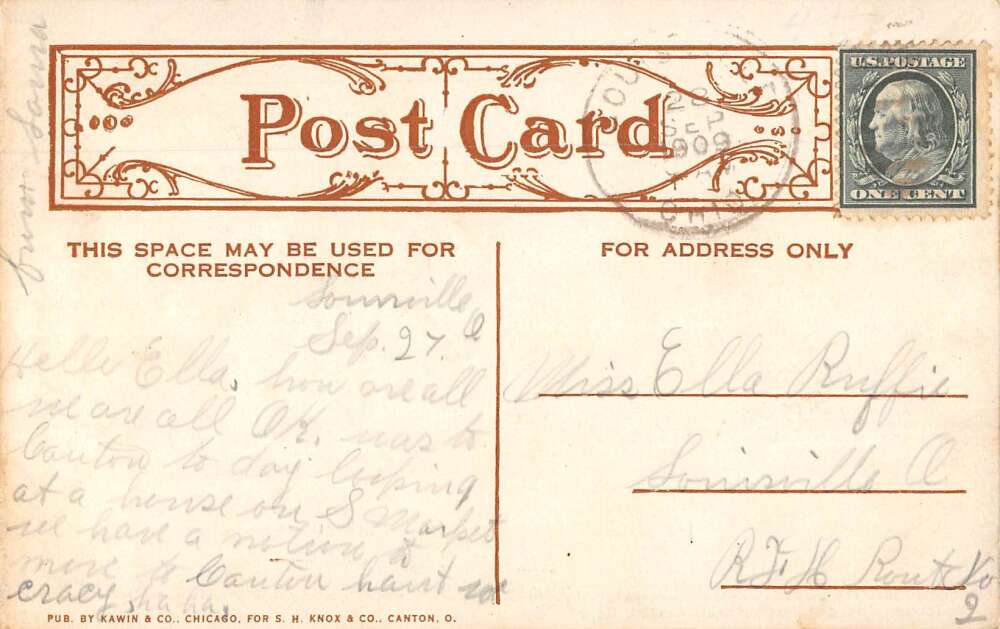 Post Card
U.S. POSTAGE
ONE CENT
28
SEP
1909
OHIO
THIS SPACE MAY BE USED FOR
CORRESPONDENCE
FOR ADDRESS ONLY
from
Louisville O
Sep. 27.
Hello Ella, how are all
we are all OK. was to
Canton to day looking
at a house on S Market
we have a notion to
move to Canton haint we
cracy, ha ha.
Miss Ella Ruffie
Louisville O
Route No
2
PUB. BY KAWIN & CO., CHICAGO, FOR S. H. KNOX & CO., CANTON, O.